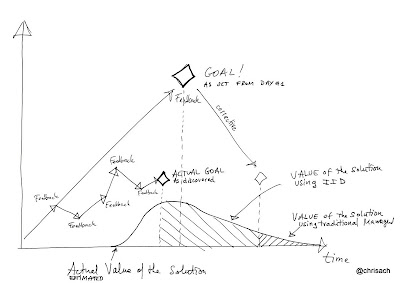 GOAL!
AS SET FROM DAY #1
Feedback
corrective
ACTUAL GOAL
As discovered
Feedback
Feedback
Feedback
Feedback
Feedback
VALUE of the Solution
using IID
VALUE of the Solution
using traditional Manager
time
Actual Value of the Solution
ESTIMATED
@chrisach